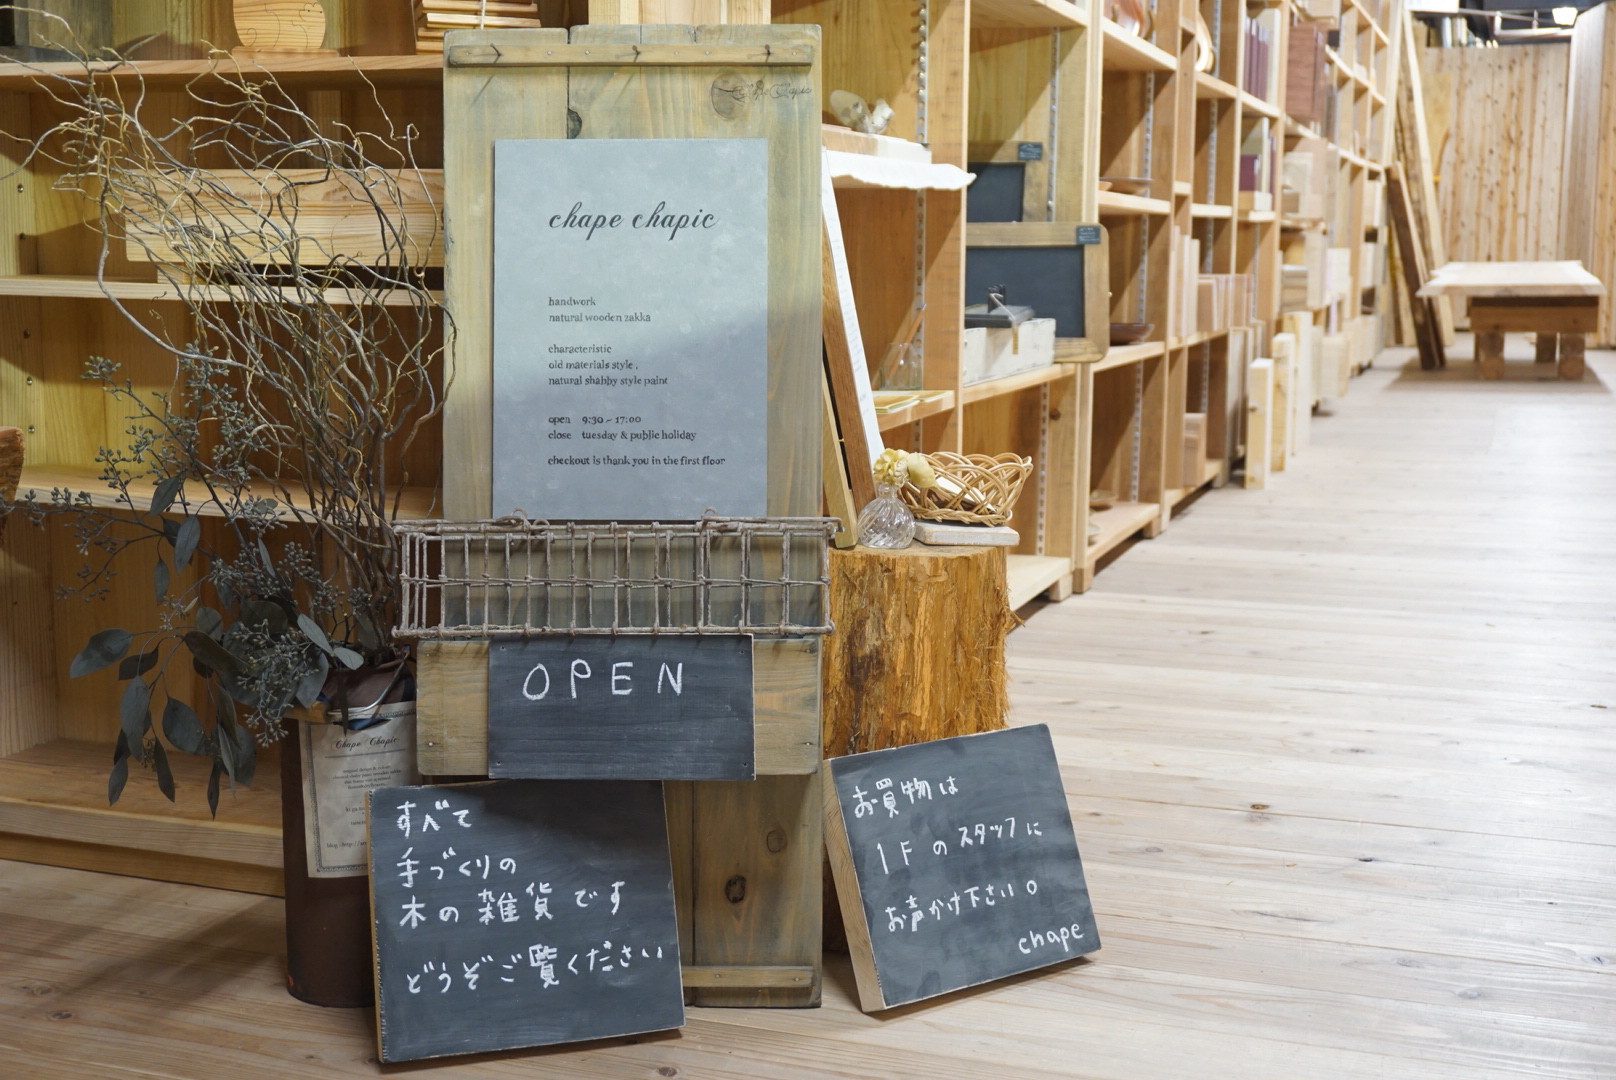 chape chapic
handwork
natural wooden zakka
characteristic
old materials style .
natural shabby style paint
open 9:30 – 17:00
close tuesday & public holiday
checkout is thank you in the first floor
OPEN
Chape Chapic
すべて
手づくりの
木の雑貨です
どうぞご覧ください
お買物は
1Fのスタッフに
お声かけ下さい。
chape